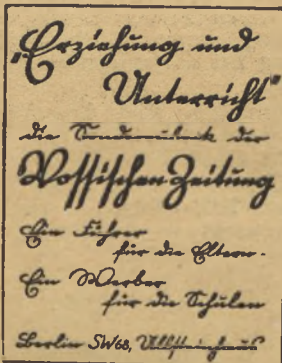 „Erziehung und
Unterricht“
die Sonderrubrik der
Vossischen Zeitung
Ein Führer
für die Eltern.
Ein Werber
für die Schulen
Berlin SW68, Ullsteinhaus